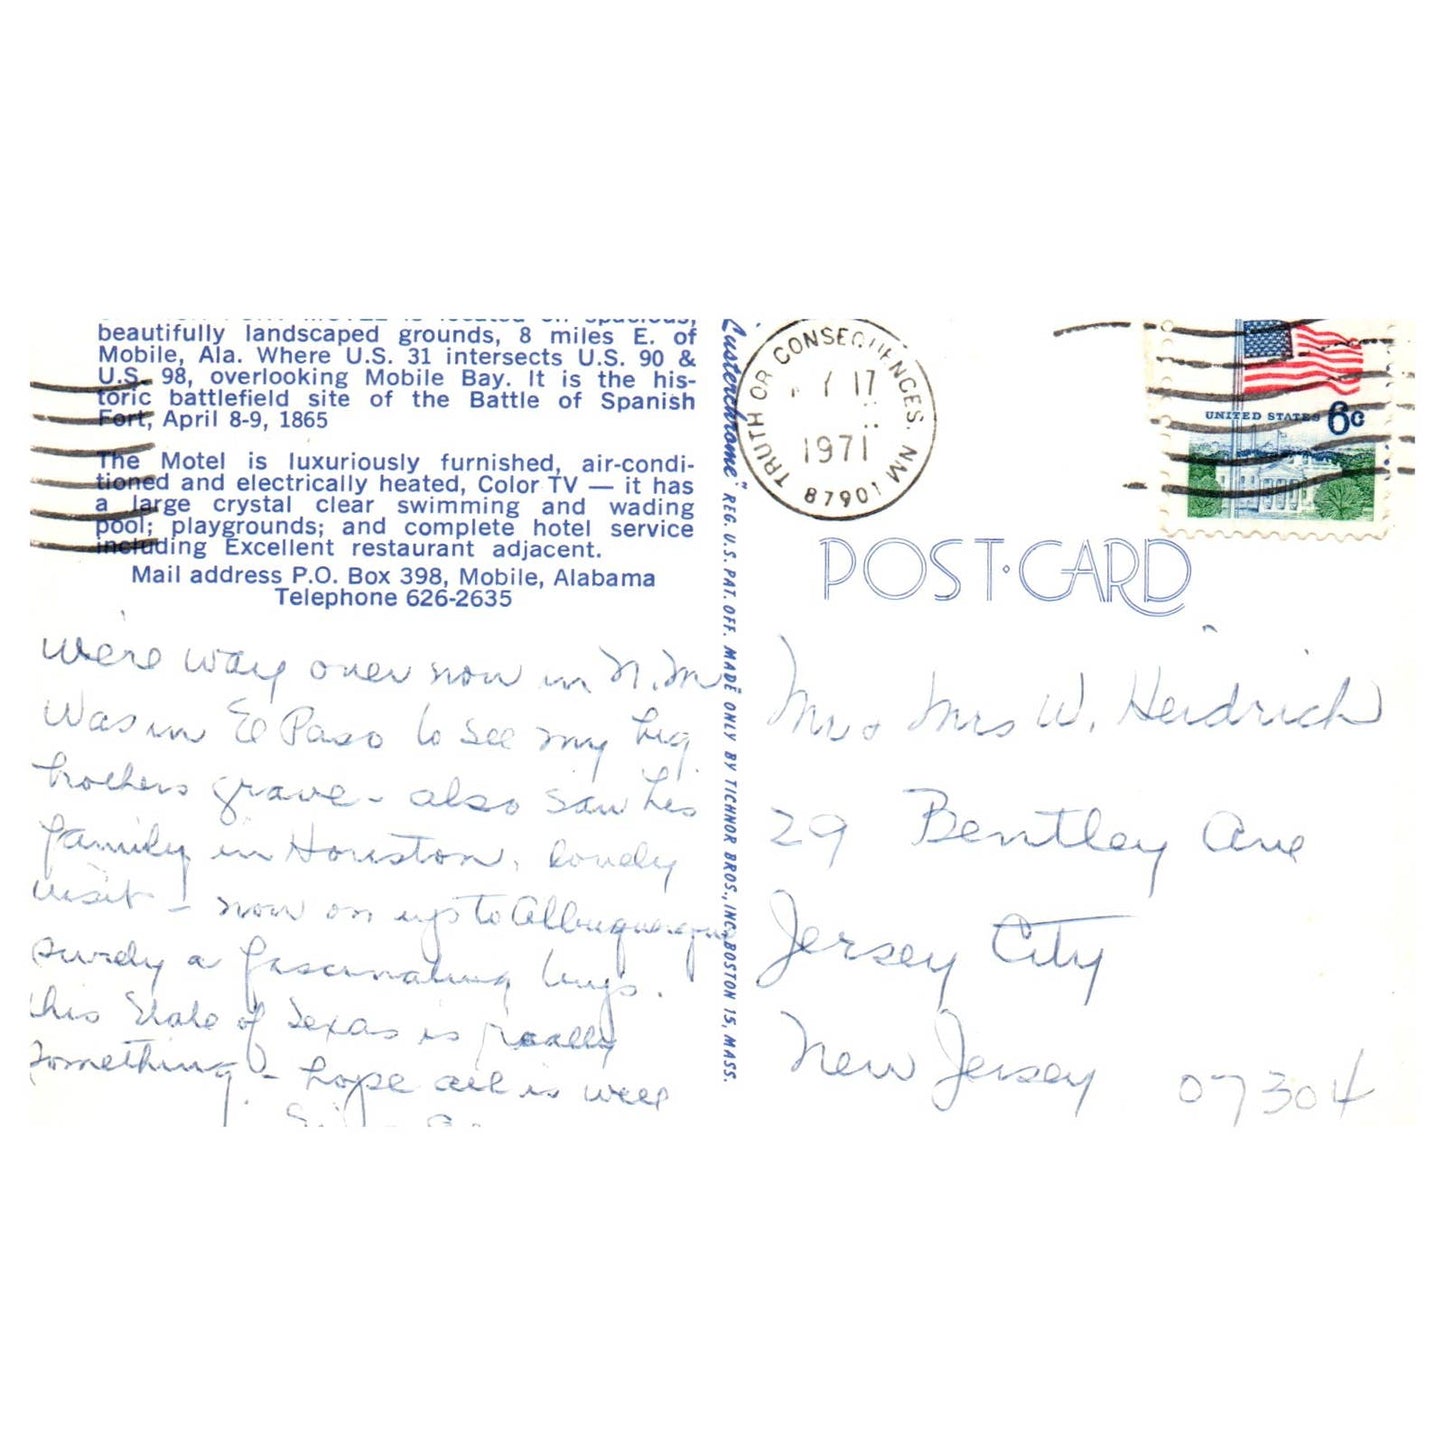 beautifully landscaped grounds, 8 miles E. of
Mobile, Ala. Where U.S. 31 intersects U.S. 90 &
U.S. 98, overlooking Mobile Bay. It is the his-
toric battlefield site of the Battle of Spanish
Fort, April 8-9, 1865
The Motel is luxuriously furnished, air-condi-
tioned and electrically heated, Color TV — it has
a large crystal clear swimming and wading
pool; playgrounds; and complete hotel service
including Excellent restaurant adjacent.
Mail address P.O. Box 398, Mobile, Alabama
Telephone 626-2635
We're way over now in N.M
Was in El Paso to see my big
brothers grave - also saw his
family in Houston, lovely
visit - now on up to Albuquerque
surely a fascinating
this State of Texas is really
something - hope all is well
"Lusterchrome" REG. U.S. PAT. OFF. MADE ONLY BY TICHNOR BROS., INC., BOSTON 15, MASS.
TRUTH OR CONSEQUENCES, NM
17
1971
87901
UNITED STATES 6c
POST CARD
Mr & Mrs W. Heidrich
29 Bentley Ave
Jersey City
New Jersey 07304